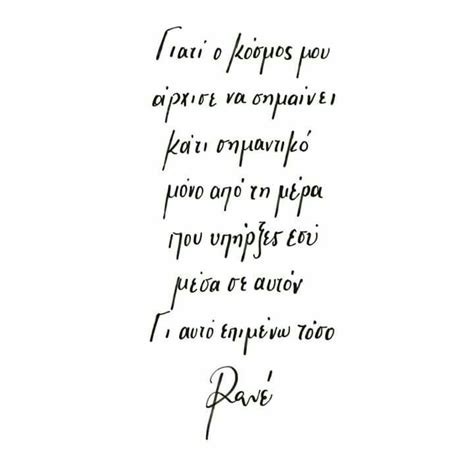 Γιατί ο κόσμος μου
άρχισε να σημαίνει
κάτι σημαντικό
μόνο από τη μέρα
που υπήρξες εσύ
μέσα σε αυτόν
Γι αυτό επιμένω τόσο
Ρανέ